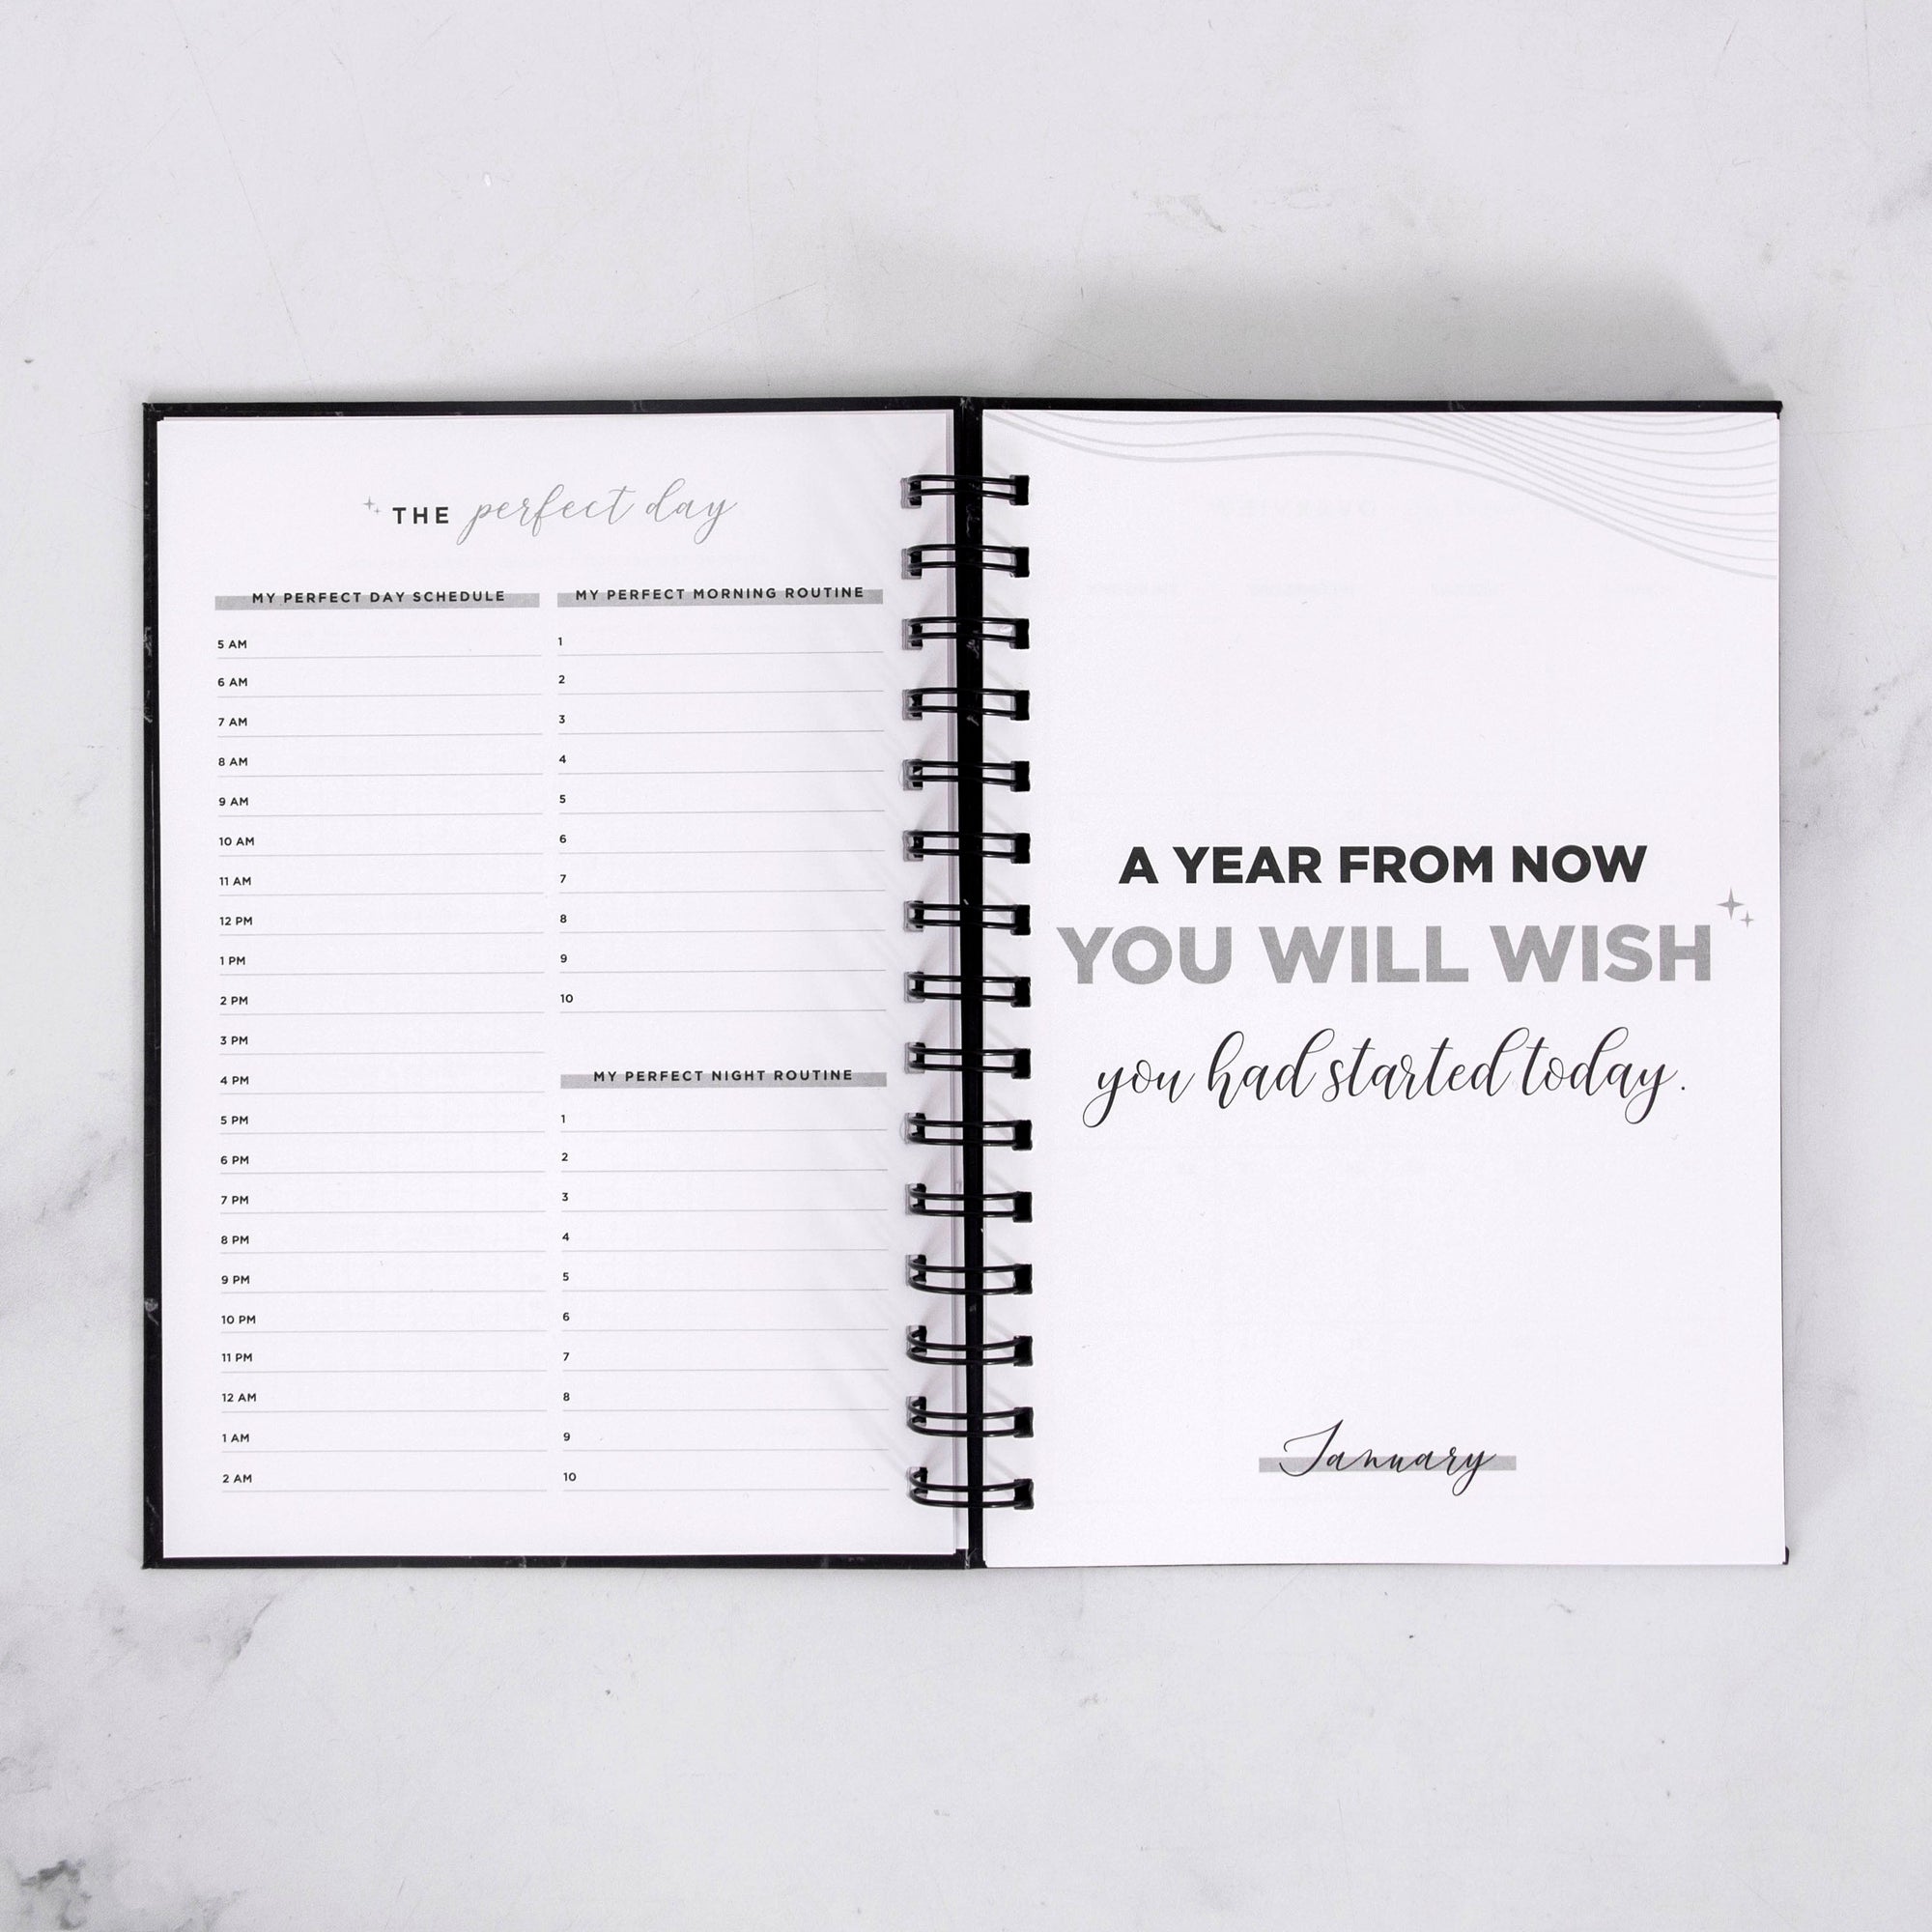 THE perfect day
MY PERFECT DAY SCHEDULE
5 AM
6 AM
7 AM
8 AM
9 AM
10 AM
11 AM
12 PM
1 PM
2 PM
3 PM
4 PM
5 PM
6 PM
7 PM
8 PM
9 PM
10 PM
11 PM
12 AM
1 AM
2 AM
MY PERFECT MORNING ROUTINE
1
2
3
4
5
6
7
8
9
10
MY PERFECT NIGHT ROUTINE
1
2
3
4
5
6
7
8
9
10
A YEAR FROM NOW
YOU WILL WISH
you had started today.
January